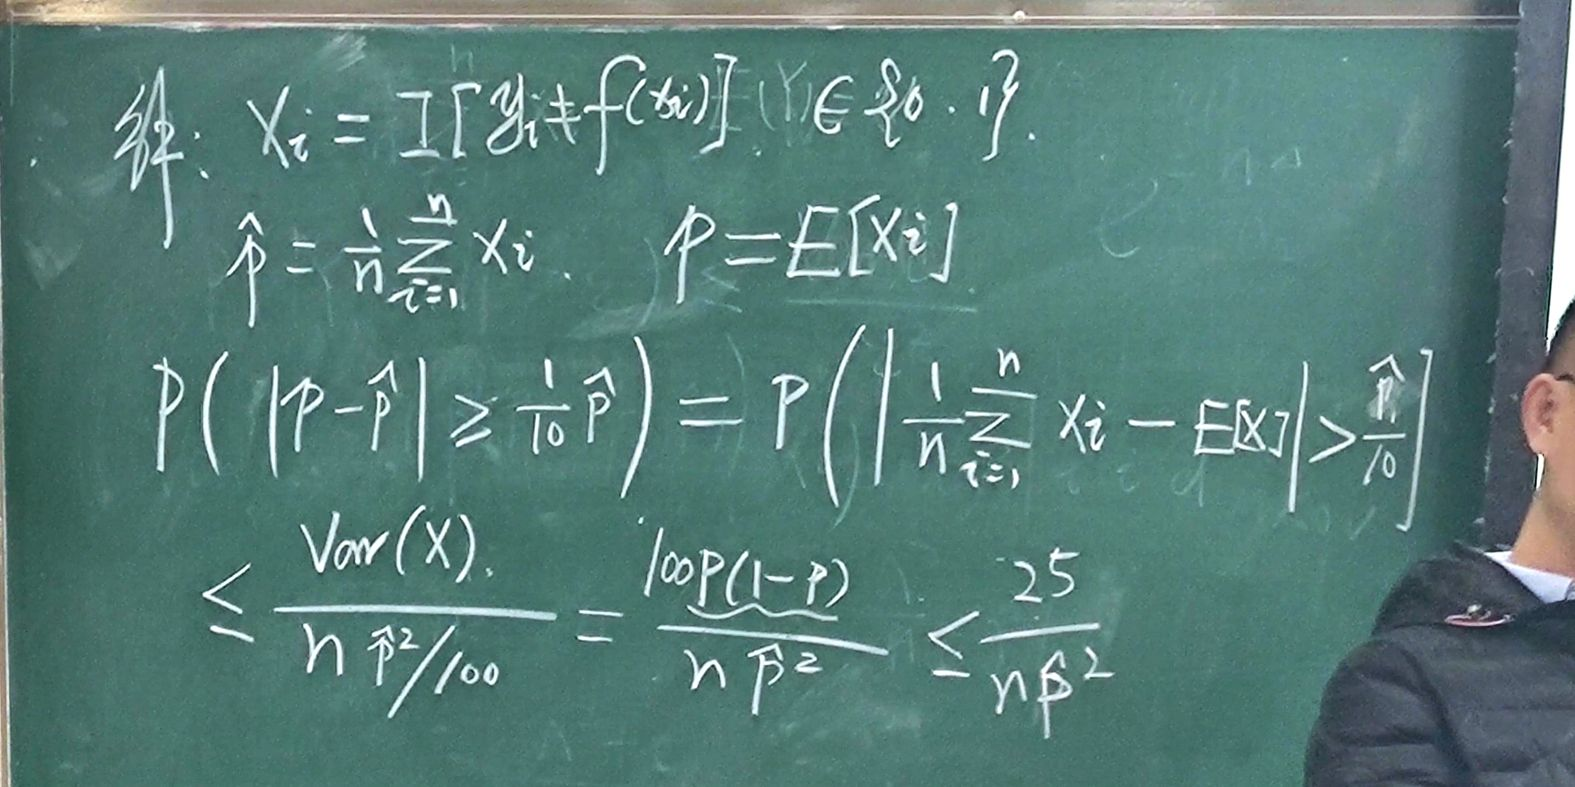 解: Xi = I[yi ≠ f(xi)] ∈ {0, 1}.
p̂ = 1/n ∑_{i=1}^{n} Xi. p = E[Xi]
P( |p - p̂| ≥ 1/10 p̂ ) = P( | 1/n ∑_{i=1}^{n} Xi - E[X] | > p̂/10 ]
≤ Var(X). / (n p̂²/100) = 100P(1-P) / (n p̂²) ≤ 25 / (n p̂²)